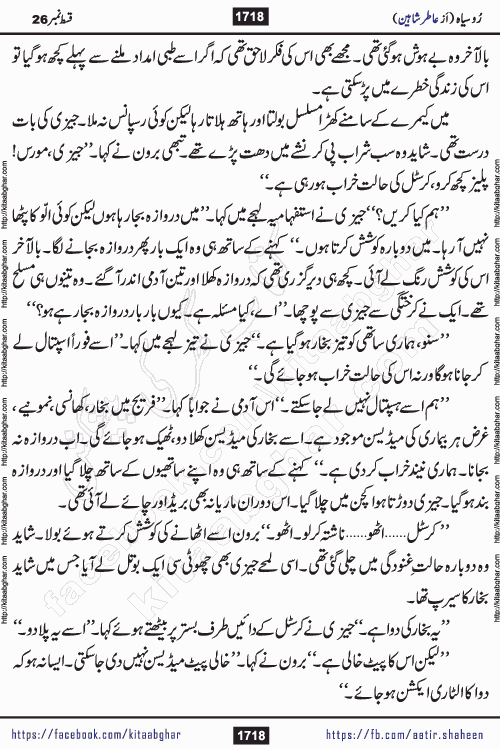 رُوسیاہ (از عاطر شاہین) 1718 قسط نمبر 26
بالآخر وہ بے ہوش ہو گئی تھی۔ مجھے بھی اس کی فکر لاحق تھی کہ اگر اسے طبی امداد ملنے سے پہلے کچھ ہو گیا تو
اس کی زندگی خطرے میں پڑ سکتی ہے۔
میں کیمرے کے سامنے کھڑا مسلسل بولتا اور ہاتھ ہلاتا رہا لیکن کوئی رسپانس نہ ملا۔ جیزی کی بات
درست تھی۔ شاید وہ سب شراب پی کر نشے میں دھت پڑے تھے۔ تبھی برون نے کہا۔ ’’جیزی، مورس!
پلیز کچھ کرو، کرسٹل کی حالت خراب ہو رہی ہے۔‘‘
’’ہم کیا کریں؟‘‘ جیزی نے استفہامیہ لہجے میں کہا۔ ’’میں دروازہ بجا رہا ہوں لیکن کوئی الّو کا پٹھا
نہیں آ رہا۔ میں دوبارہ کوشش کرتا ہوں۔‘‘ کہنے کے ساتھ ہی وہ ایک بار پھر دروازہ بجانے لگا۔ بالآخر
اس کی کوشش رنگ لے آئی۔ کچھ ہی دیر گزری تھی کہ دروازہ کھلا اور تین آدمی اندر آ گئے۔ وہ تینوں ہی مسلح
تھے۔ ایک نے کرختگی سے جیزی سے پوچھا۔ ’’اے، کیا مسئلہ ہے۔ کیوں بار بار دروازہ بجا رہے ہو؟‘‘
’’سنو، ہماری ساتھی کو تیز بخار ہو گیا ہے۔‘‘ جیزی نے تیز لہجے میں کہا۔ ’’اسے فوراً اسپتال لے
کر جانا ہو گا ورنہ اس کی حالت خراب ہو جائے گی۔‘‘
’’ہم اسے ہسپتال نہیں لے جا سکتے۔‘‘ اس آدمی نے جواباً کہا۔ ’’فریج میں بخار، کھانسی، نمونیے،
غرض ہر بیماری کی میڈیسن موجود ہے۔ اسے بخار کی میڈیسن کھلا دو، ٹھیک ہو جائے گی۔ اب دروازہ نہ
بجانا۔ ہماری نیند خراب کر دی ہے۔‘‘ کہنے کے ساتھ ہی وہ اپنے ساتھیوں کے ساتھ چلا گیا اور دروازہ
بند ہو گیا۔ جیزی دوڑتا ہوا کچن میں چلا گیا۔ اس دوران ماریانہ بھی بریڈ اور چائے لے آئی تھی۔
’’کرسٹل......اٹھو......ناشتہ کر لو۔ اٹھو۔‘‘ برون اسے اٹھانے کی کوشش کرتے ہوئے بولا۔ شاید
وہ دوبارہ حالتِ غنودگی میں چلی گئی تھی۔ اسی لمحے جیزی بھی چھوٹی سی ایک بوتل لے آیا جس میں شاید
بخار کا سیرپ تھا۔
’’یہ بخار کی دوا ہے۔‘‘ جیزی نے کرسٹل کے دائیں طرف بستر پر بیٹھتے ہوئے کہا۔ ’’اسے پلا دو۔‘‘
’’لیکن اس کا پیٹ خالی ہے۔‘‘ برون نے کہا۔ ’’خالی پیٹ میڈیسن نہیں دی جا سکتی۔ ایسا نہ ہو کہ
دوا کا الٹا ری ایکشن ہو جائے۔‘‘
https://facebook.com/kitaabghar 1718 https://fb.com/aatir.shaheen
http://kitaabghar.com http://kitaabghar.com http://kitaabghar.com http://kitaabghar.com http://kitaabghar.com http://kitaabghar.com
http://kitaabghar.com http://kitaabghar.com http://kitaabghar.com http://kitaabghar.com http://kitaabghar.com http://kitaabghar.com
kitaabghar.com
facebook.com/kitaabghar